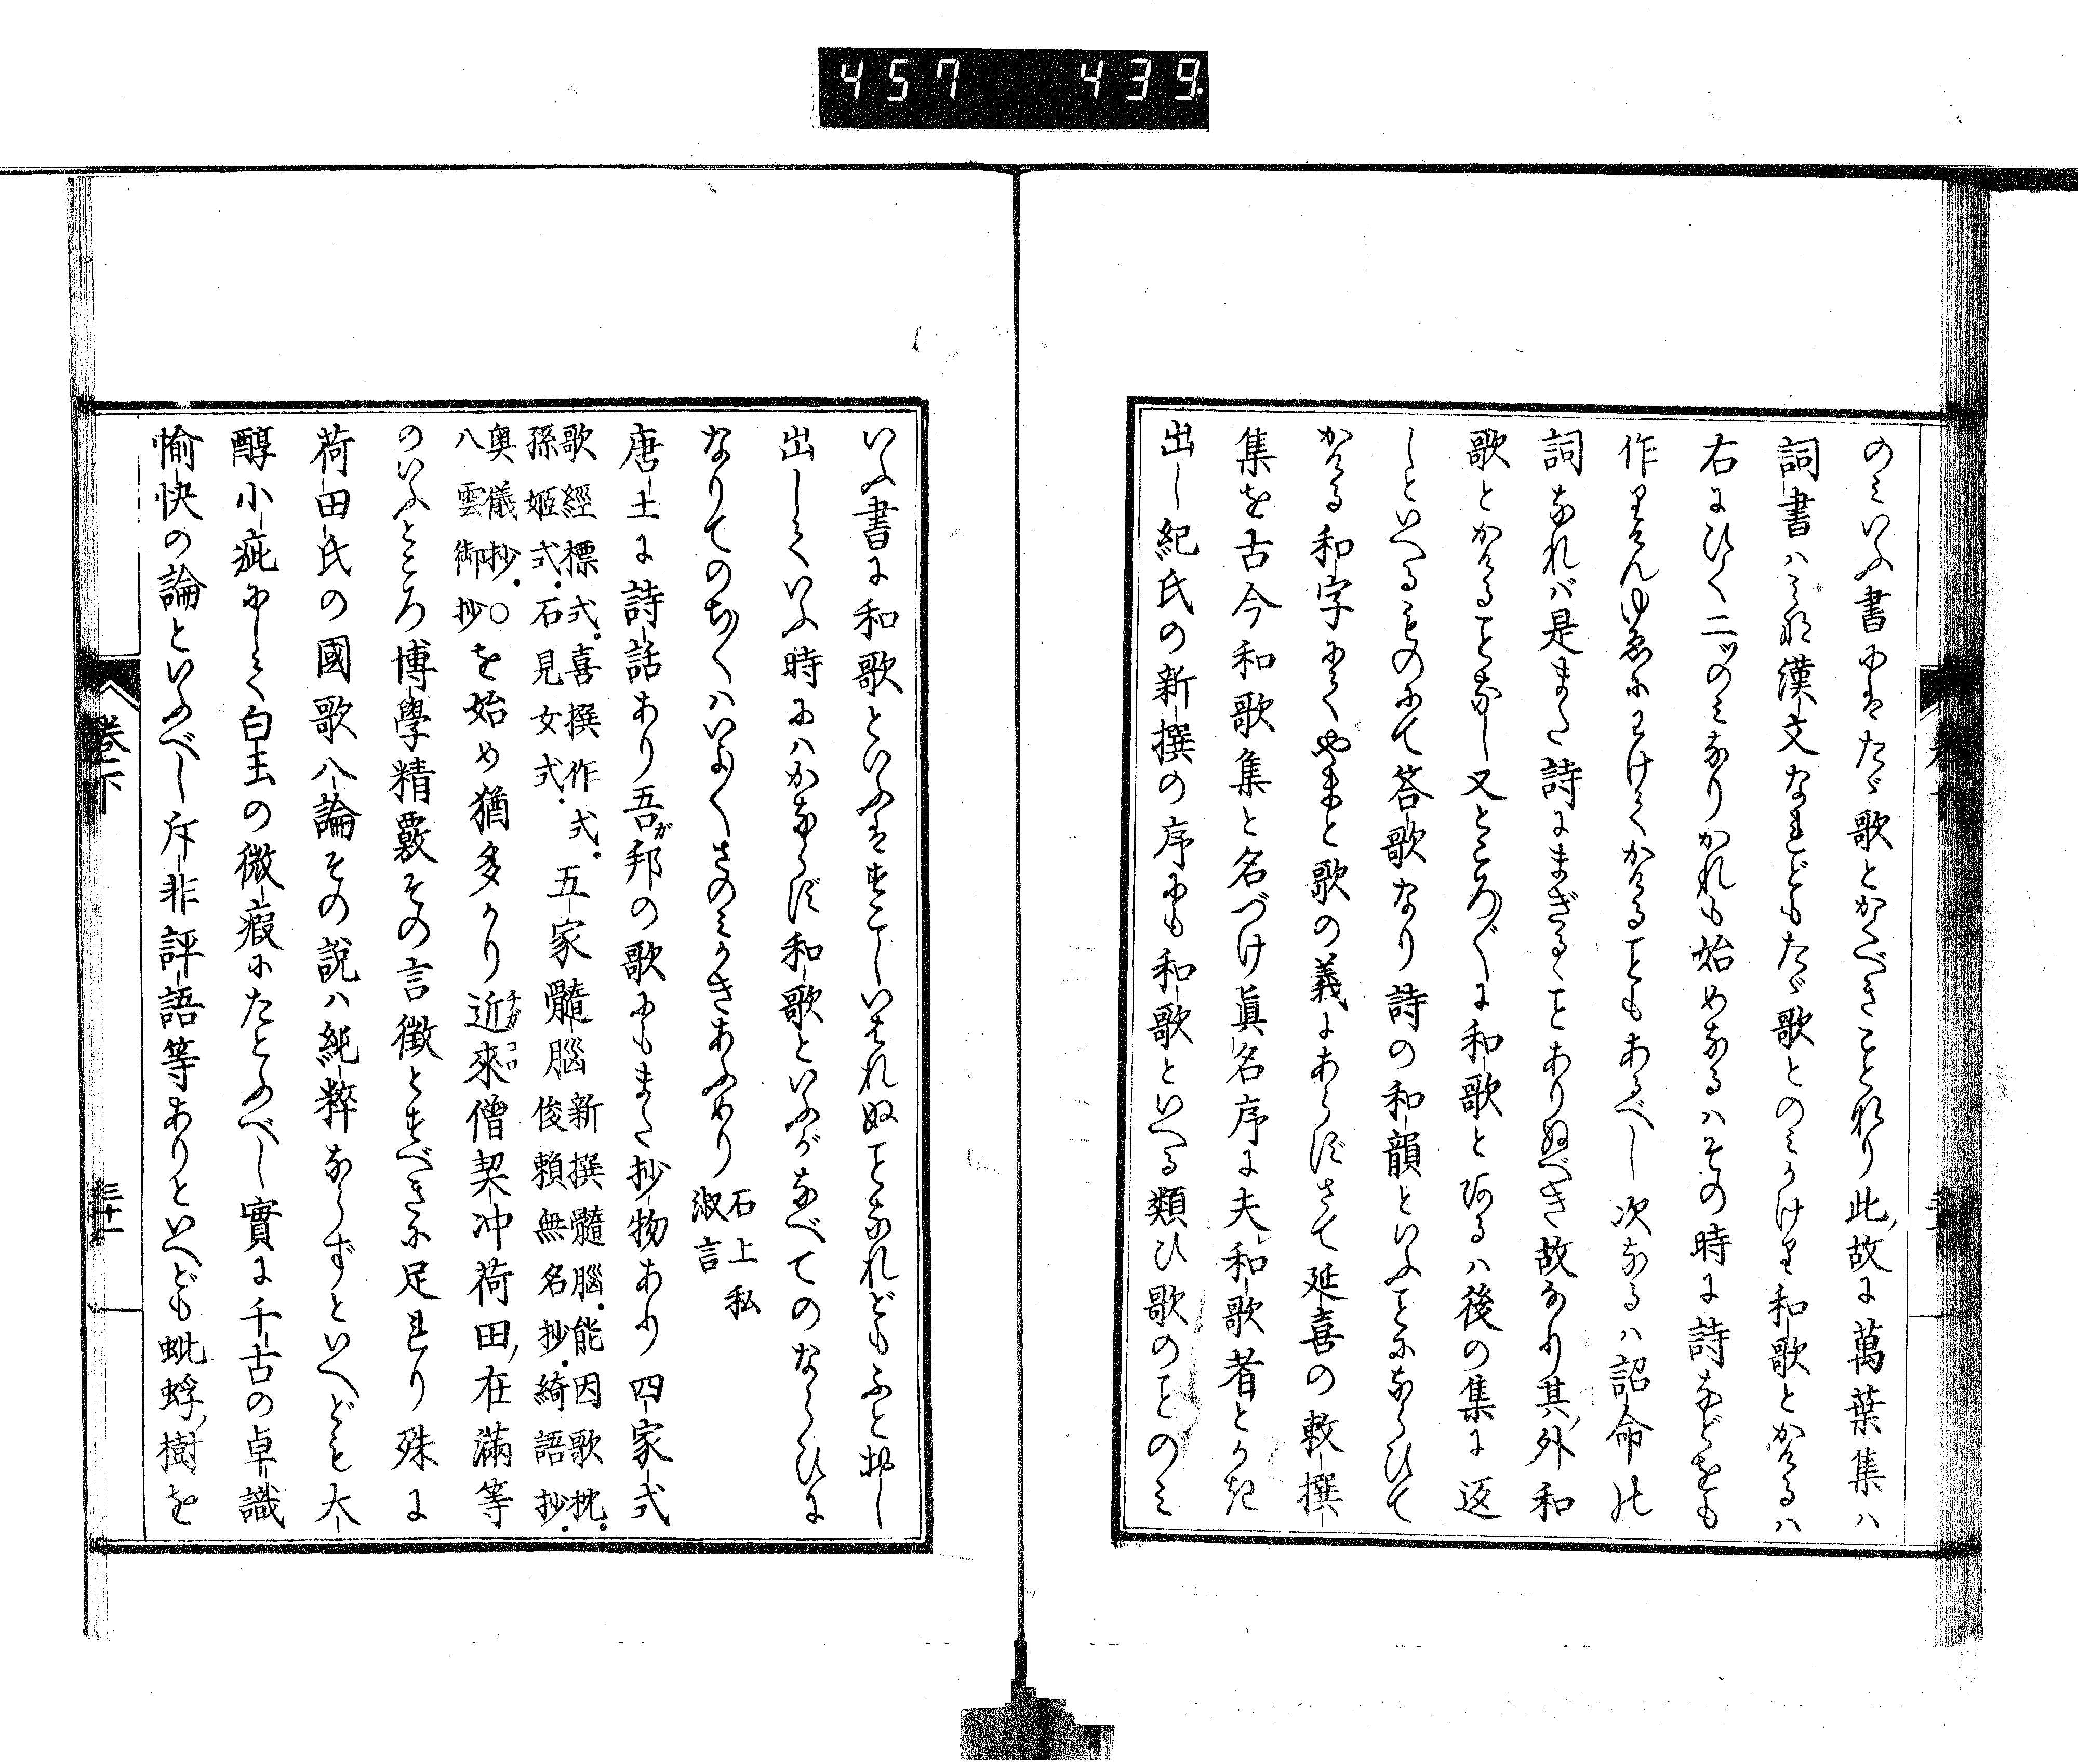 457 439
のみいふ書にはたゞ歌とかくべきことなり此故に萬葉集ハ
詞書ハみな漢文なれどもたゞ歌とのみかけり和歌とかけるハ
右にひく二ツのみなりかれも始めなるハその時に詩などをも
作りけんゆゑにわけてかけることもあるべし次なるハ詔命の
詞なれバ是また詩にまぎるゝことありぬべき故なり其外和
歌とかけることなし又ところ〴〵に和歌とあるハ後の集に返
しといへるものにて答歌なり詩の和韻といふことにならひて
かける和字にてやまと歌の義にあらずさて延喜の敕撰
集を古今和歌集と名づけ眞名序に夫和歌者とかき
出し紀氏の新撰の序にも和歌といへる類ひ歌のことのミ
いふ書に和歌といふはすこしいはれぬことなれどもふと出し
出していふ時にハかならず和歌といふがなべてのならひに
なりてのちハいよ〳〵さのみかきあふめり 石上私
淑言
唐土に詩話あり吾ガ邦の歌にもまた抄物あり四家式
歌經標式。喜撰作式。
孫姬式。石見女式。 五家髓腦 新撰髓腦。能因歌枕。
俊賴無名抄。綺語抄。
奧儀抄。〇
八雲御抄 を始め猶多かり近來チカゴロ僧契冲荷田在滿等
のいふところ博學精覈その言徵とすべきに足れり殊に
荷田氏の國歌八論その說ハ純粹ならずといへども大
醇小疵にして白玉の微瑕にたとふべし實に千古の卓識
愉快の論といふべし斥非評語等ありといへども蚍蜉樹を
卷下
三十一